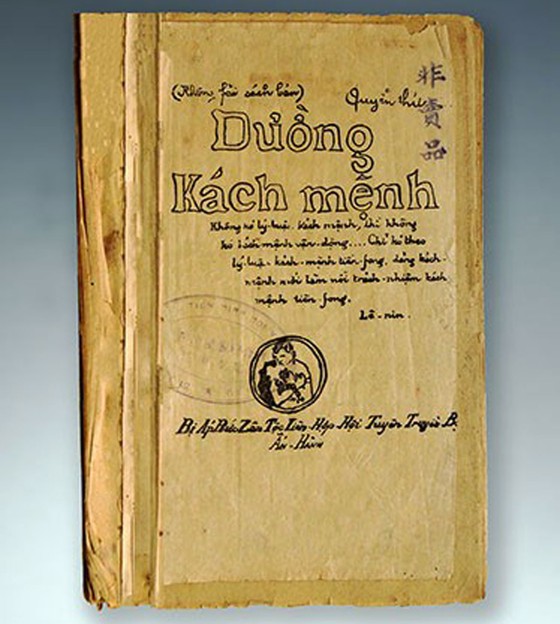 (Không fải sách bán) Quyển thứ
非賣品
Dường
Kách mệnh
Không kó lý-luận kách mệnh, thì không
kó kách mệnh vận-động.... Chỉ kó theo
lý-luận kách-mệnh tiền-fong, đảng kách-
mệnh mới làm nổi trách-nhiệm kách
mệnh tiền-fong.
Lê-nin.
Bị Áp Bức Zân Tộc Liên-Hợp-Hội Tuyên Truyền Bộ
Ấn-Hành